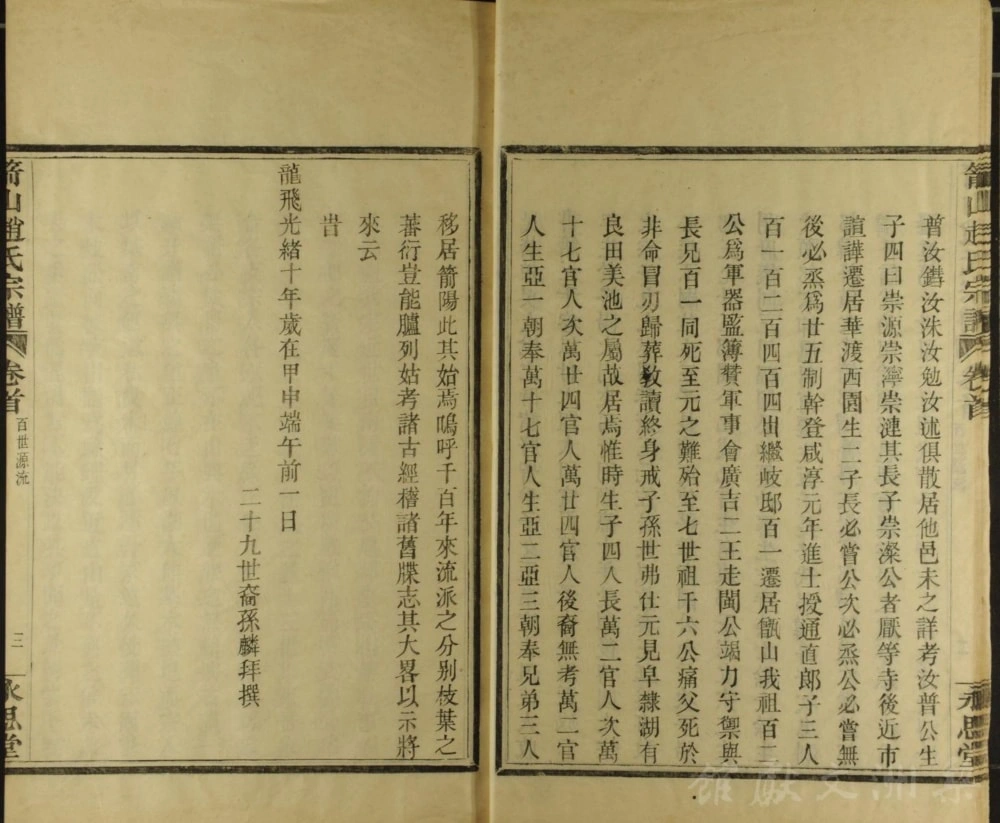 普汝鐟汝洙汝勉汝述俱散居他邑未之詳考汝普公生
子四曰崇源崇灣崇漣其長子崇濴公者厭等寺後近市
諠譁遷居華渡西園生二子長必嘗公次必烝公必嘗無
後必烝爲廿五制幹登咸淳元年進士授通直郎子三人
百一百二百四百四出繼岐邸百一遷居甑山我祖百二
公爲軍器監簿贊軍事會廣吉二王走閩公竭力守禦與
長兄百一同死至元之難殆至七世祖千六公痛父死於
非命冒刃歸葬敎讀終身戒子孫世弗仕元見皁隸湖有
良田美池之屬故居焉惟時生子四人長萬二官人次萬
十七官人次萬廿四官人萬廿四官人後裔無考萬二官
人生亞一朝奉萬十七官人生亞二亞三朝奉兄弟三人
箭山趙氏宗譜 卷首
永思堂
移居箭陽此其始焉嗚呼千百年來流派之分别枝葉之
蕃衍豈能臚列姑考諸古經稽諸舊牒志其大畧以示將
來云
旹
龍飛光緒十年歲在甲申端午前一日
二十九世裔孫麟拜撰
箭山趙氏宗譜 卷首 百世源流 三 永思堂
梨洲文獻館